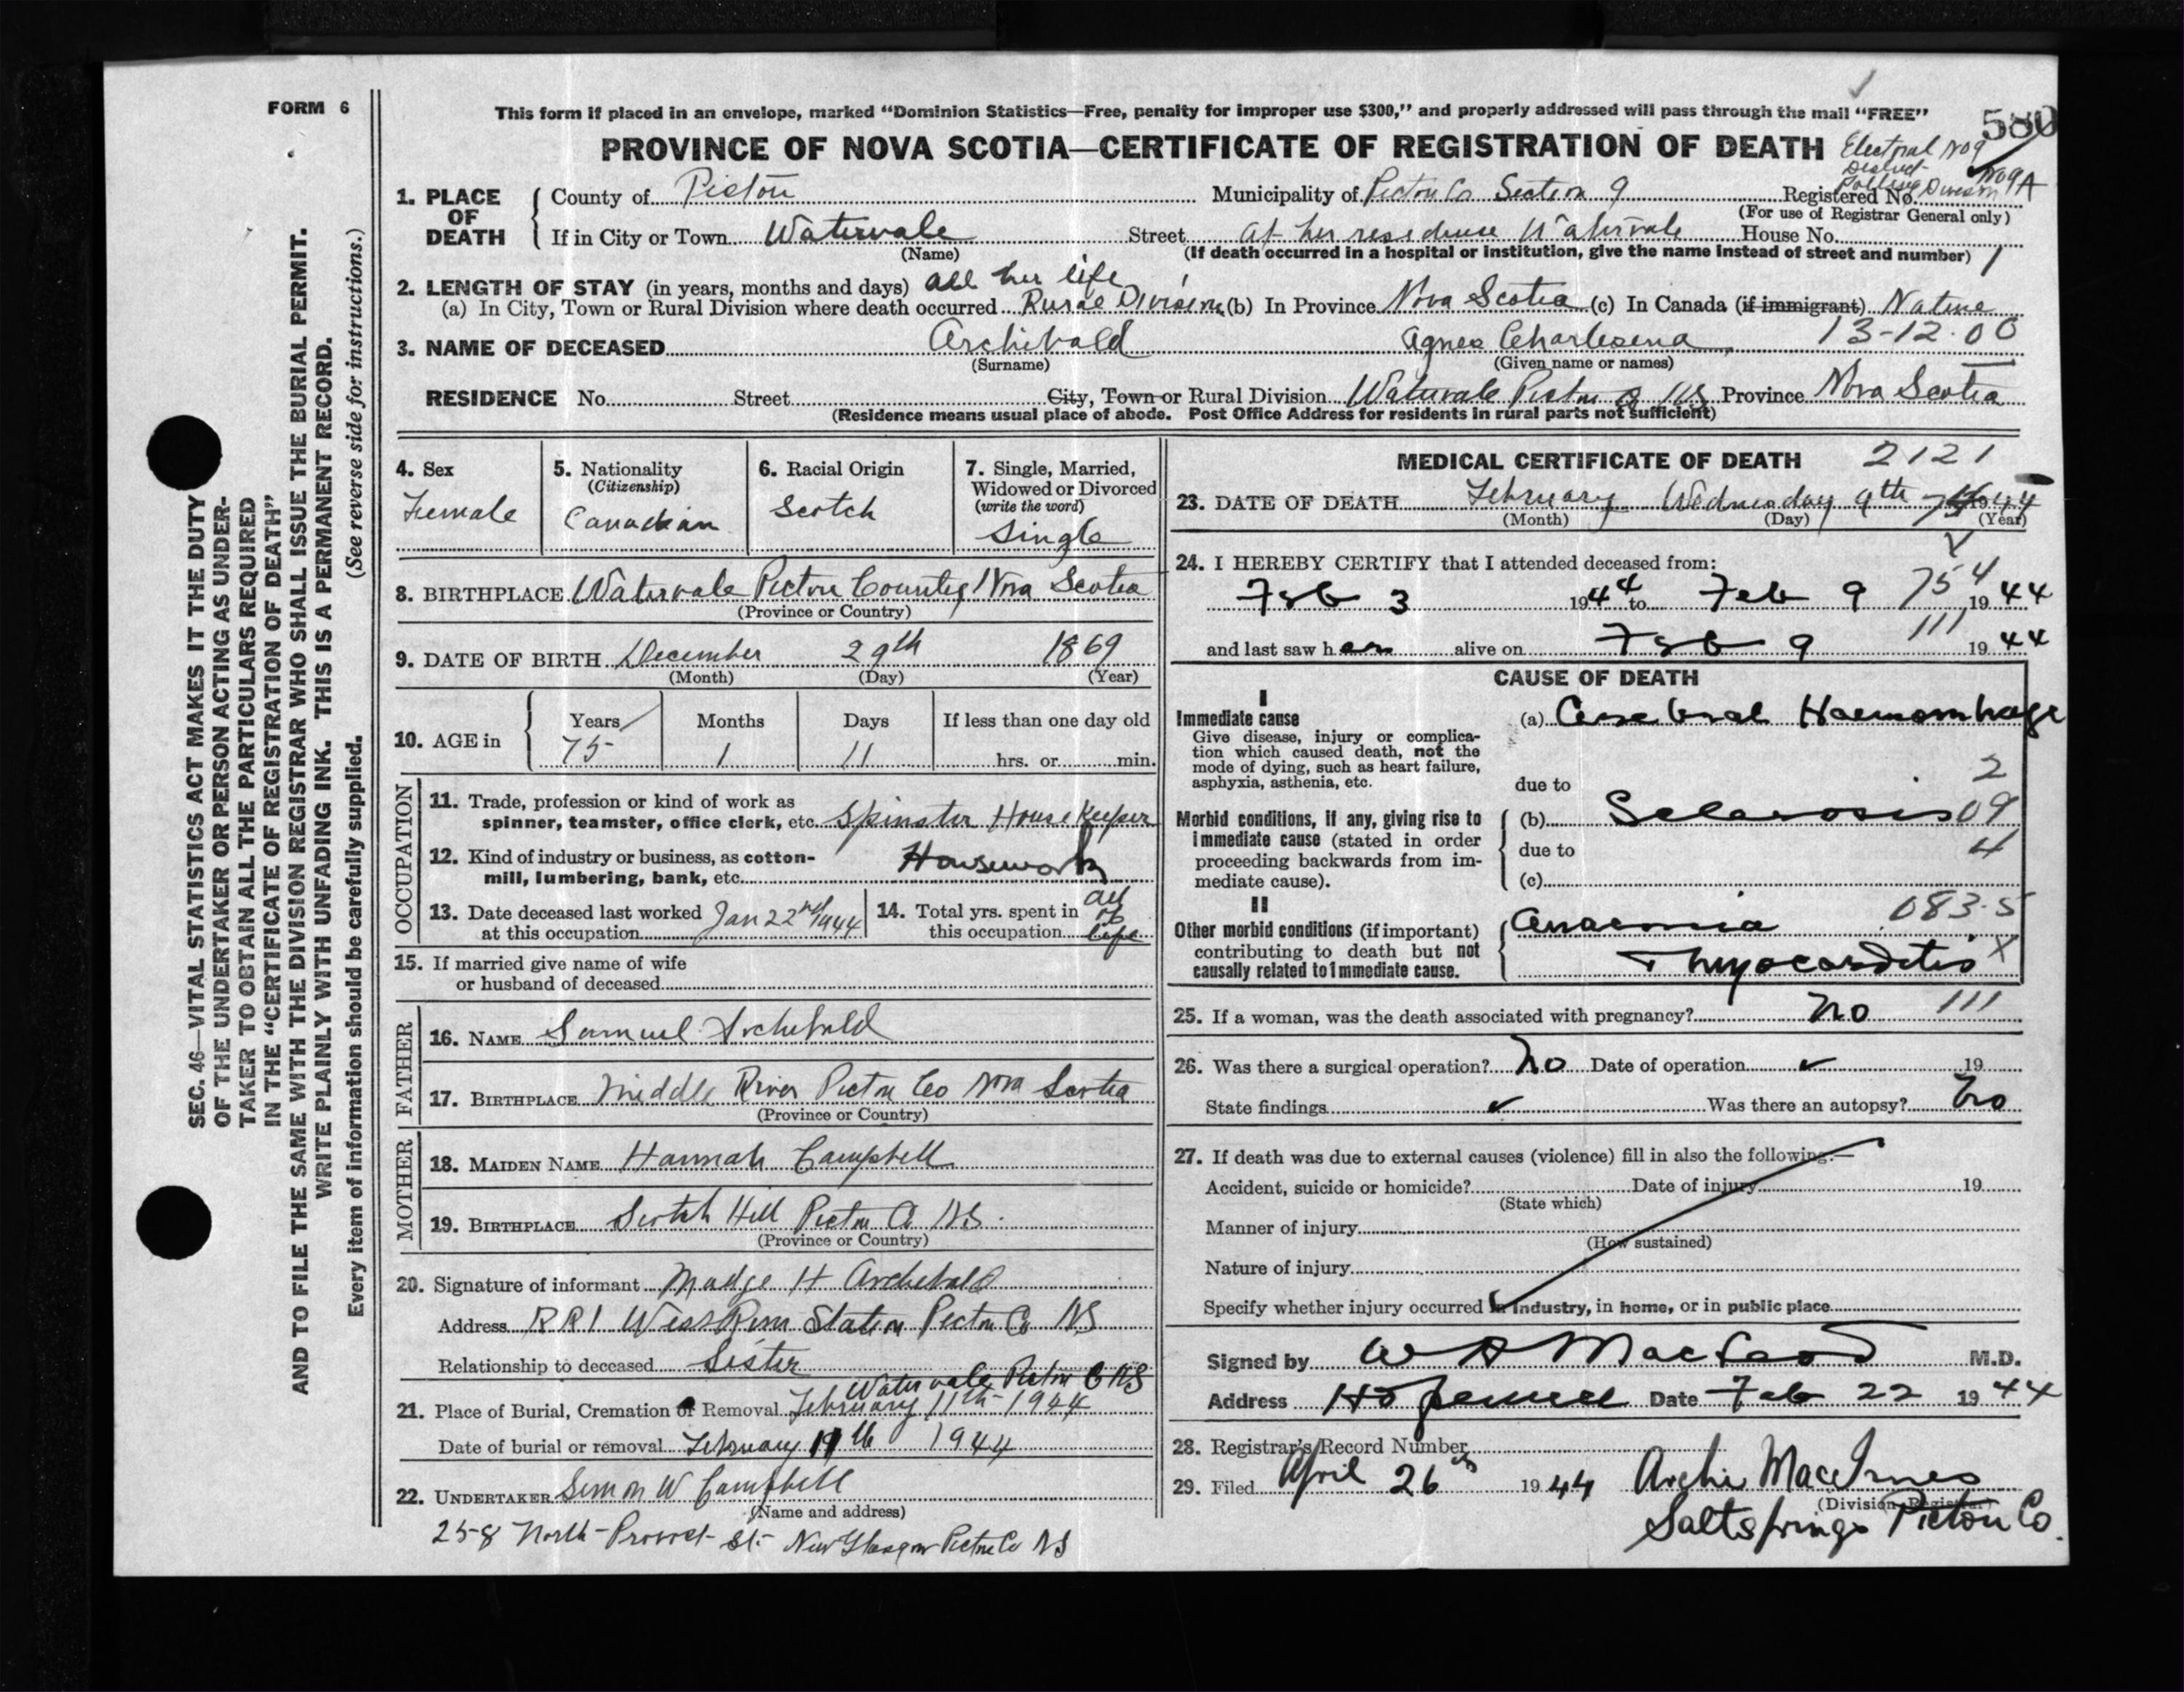 FORM 6
This form if placed in an envelope, marked "Dominion Statistics—Free, penalty for improper use $300," and properly addressed will pass through the mail "FREE"
580
PROVINCE OF NOVA SCOTIA—CERTIFICATE OF REGISTRATION OF DEATH
Electoral No 9
District
Polling Division No 9A
1. PLACE OF DEATH
County of Pictou
Municipality of Pictou Co Section 9
Registered No.
(For use of Registrar General only)
If in City or Town Watervale
(Name)
Street at her residence Watervale House No.
(If death occurred in a hospital or institution, give the name instead of street and number) 1
2. LENGTH OF STAY (in years, months and days) all her life
(a) In City, Town or Rural Division where death occurred Rural Division (b) In Province Nova Scotia (c) In Canada (if immigrant) Native
3. NAME OF DECEASED Archibald Agnes Charlesena 13-12.00
(Surname) (Given name or names)
RESIDENCE No. Street City, Town or Rural Division Watervale Pictou Co NS Province Nova Scotia
(Residence means usual place of abode. Post Office Address for residents in rural parts not sufficient)
4. Sex
Female
5. Nationality
(Citizenship)
Canadian
6. Racial Origin
Scotch
7. Single, Married,
Widowed or Divorced
(write the word)
Single
8. BIRTHPLACE Watervale Pictou County Nova Scotia
(Province or Country)
9. DATE OF BIRTH December 29th 1869
(Month) (Day) (Year)
10. AGE in
Years Months Days If less than one day old
75 1 11 hrs. or min.
OCCUPATION
11. Trade, profession or kind of work as
spinner, teamster, office clerk, etc. Spinster House Keeper
12. Kind of industry or business, as cotton-
mill, lumbering, bank, etc. Housework
13. Date deceased last worked
at this occupation Jan 22nd 1944
14. Total yrs. spent in
this occupation all of life
15. If married give name of wife
or husband of deceased
FATHER
16. NAME Samuel Archibald
17. BIRTHPLACE Middle River Pictou Co Nova Scotia
(Province or Country)
MOTHER
18. MAIDEN NAME Hannah Campbell
19. BIRTHPLACE Scotch Hill Pictou Co NS.
(Province or Country)
20. Signature of informant Madge H Archibald
Address RR1 West River Station Pictou Co NS
Relationship to deceased Sister
Watervale Pictou Co NS
21. Place of Burial, Cremation or Removal February 11th 1944
Date of burial or removal February 11th 1944
22. UNDERTAKER Simon W Campbell
(Name and address)
258 North Provost St. New Glasgow Pictou Co NS
MEDICAL CERTIFICATE OF DEATH 2121
23. DATE OF DEATH February Wednesday 9th 1944
(Month) (Day) (Year)
24. I HEREBY CERTIFY that I attended deceased from:
Feb 3 1944 to Feb 9 1944
75 4
and last saw her alive on Feb 9 1944
111
CAUSE OF DEATH
I
Immediate cause
Give disease, injury or complica-
tion which caused death, not the
mode of dying, such as heart failure,
asphyxia, asthenia, etc.
(a) Cerebral Haemorrhage
due to
2
Morbid conditions, if any, giving rise to
immediate cause (stated in order
proceeding backwards from im-
mediate cause).
(b) Sclerosis 09
due to 4
(c)
II
Other morbid conditions (if important)
contributing to death but not
causally related to immediate cause.
Anaemia 083.5
+ Myocarditis X
25. If a woman, was the death associated with pregnancy? No 111
26. Was there a surgical operation? No Date of operation 19
State findings Was there an autopsy? No
27. If death was due to external causes (violence) fill in also the following:—
Accident, suicide or homicide? Date of injury 19
(State which)
Manner of injury
(How sustained)
Nature of injury
Specify whether injury occurred in industry, in home, or in public place
Signed by W A MacLeod M.D.
Address Hopewell Date Feb 22 1944
28. Registrar's Record Number
29. Filed April 26th 1944 Archi MacInnes
(Division Registrar)
Saltsprings Pictou Co.
SEC. 46—VITAL STATISTICS ACT MAKES IT THE DUTY
OF THE UNDERTAKER OR PERSON ACTING AS UNDER-
TAKER TO OBTAIN ALL THE PARTICULARS REQUIRED
IN THE "CERTIFICATE OF REGISTRATION OF DEATH"
AND TO FILE THE SAME WITH THE DIVISION REGISTRAR WHO SHALL ISSUE THE BURIAL PERMIT.
WRITE PLAINLY WITH UNFADING INK. THIS IS A PERMANENT RECORD.
Every item of information should be carefully supplied. (See reverse side for instructions.)